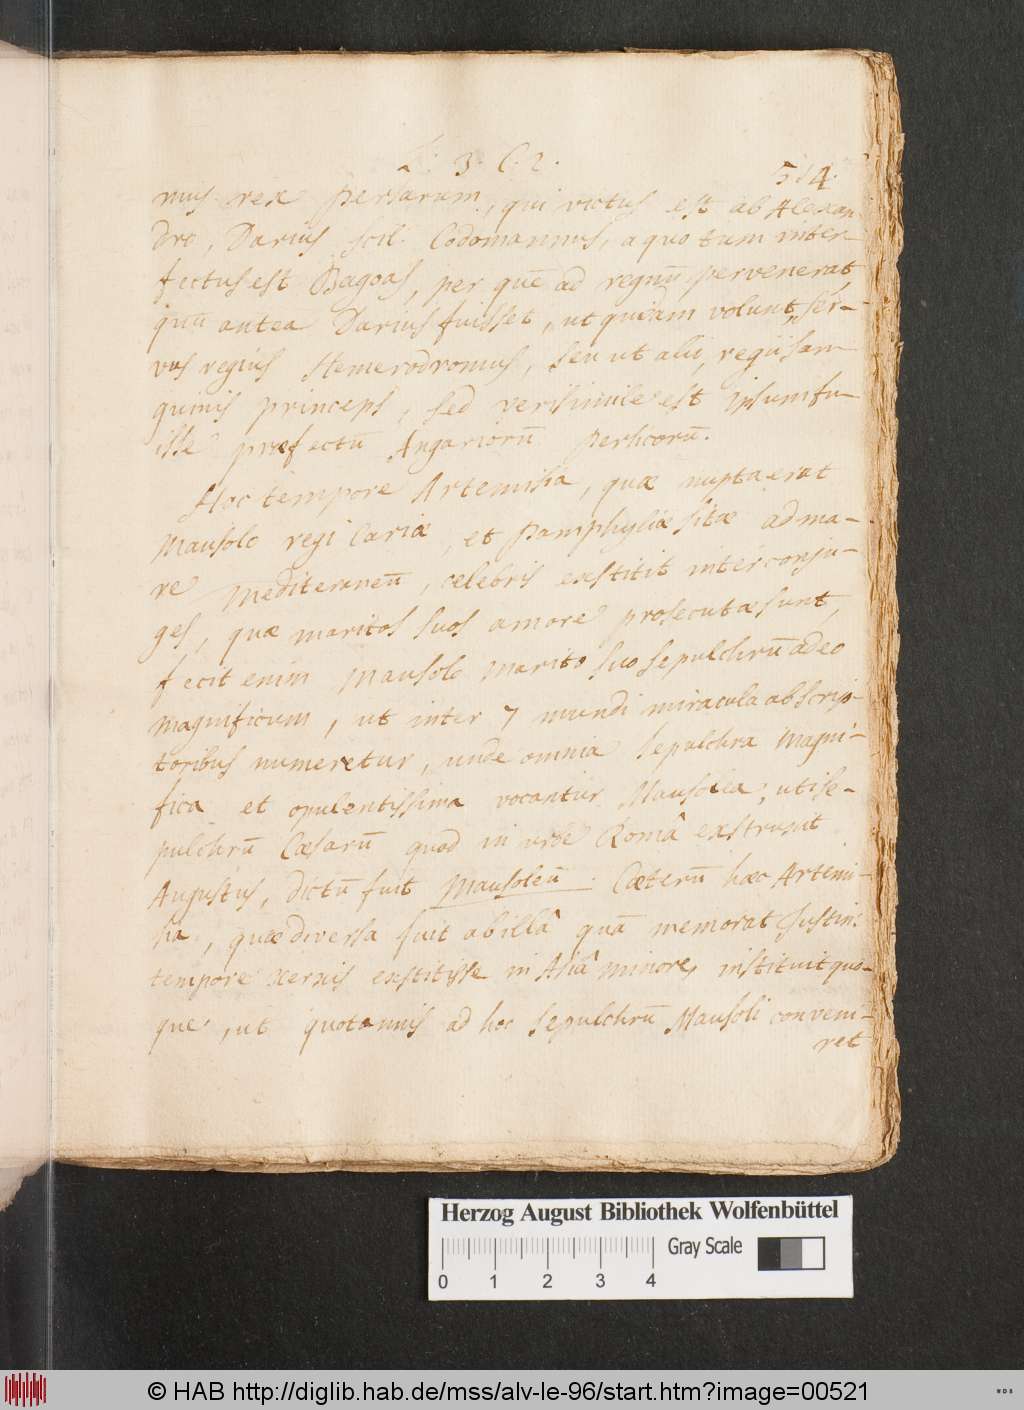 L. 3. C. 2.
514.
mus rex Persarum, qui victus est ab Alexan-
dro, Darius scil. Codomannus, a quo tum inter-
fectus est Bagoas, per quē ad regnū pervenerat
quū antea Darius fuisset, ut quidam volunt, ser-
vus regius Hemerodromus, seu ut alii, regii san-
guinis princeps, sed verisimile est ipsum fu-
isse præfectū Angariorū persicorū.
Hoc tempore Artemisia, quæ nupta erat
Mausolo regi Cariæ, et Pamphyliæ sitæ ad ma-
re Mediteraneū, celebris exstitit inter conju-
ges, quæ maritos suos amore prosecutæ sunt,
fecit enim Mausolo marito suo sepulchrū adeo
magnificum, ut inter 7 mundi miracula ab scrip-
toribus numeretur, unde omnia sepulchra magni-
fica et opulentissima vocantur Mausolea, uti se-
pulchrū Cæsarū quod in urbe Româ exstruxit
Augustus, dictū fuit Mausoleū. Cæterū hæc Artemi-
sia, quæ diversa fuit ab illâ quā memorat Justin:
tempore Xerxis exstitisse in Asiâ minore, instituit quo-
que, ut quotannis ad hoc sepulchrū Mausoli conveni-
ret
Herzog August Bibliothek Wolfenbüttel
Gray Scale
0 1 2 3 4
© HAB http://diglib.hab.de/mss/alv-le-96/start.htm?image=00521